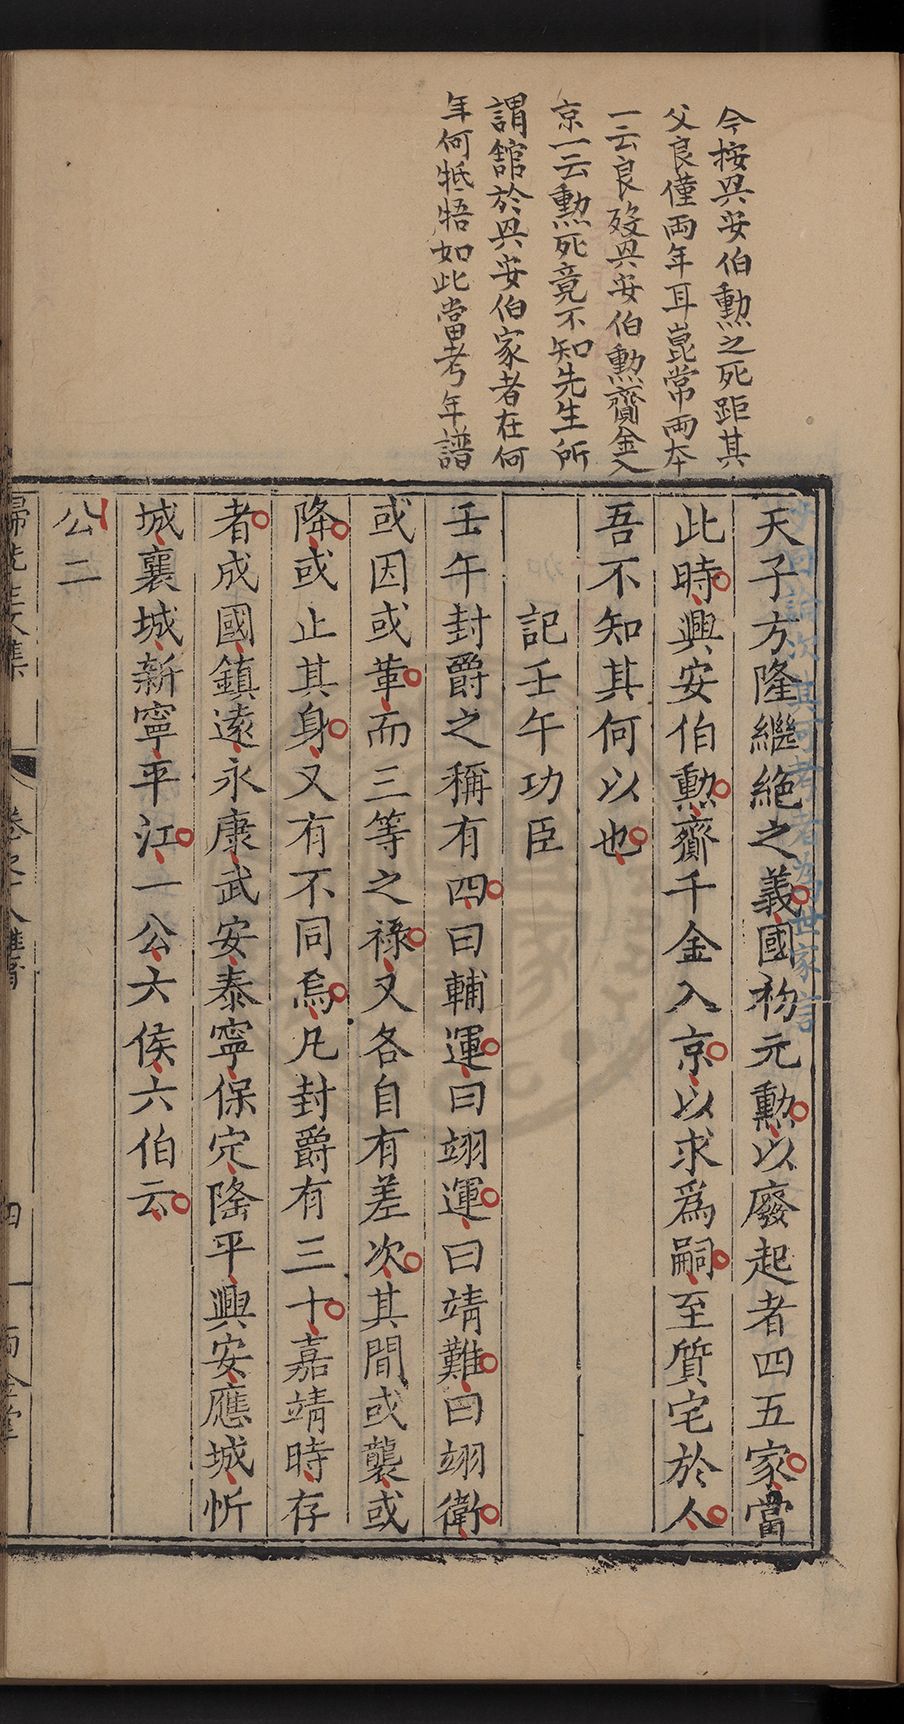 今按興安伯勲之死距其
父良僅兩年耳崑常兩本
一云良歿興安伯勲齎金入
京一云勲死竟不知先生所
謂舘於興安伯家者在何
年何牴牾如此當考年譜
天子方隆繼絶之義國初元勲以廢起者四五家當
此時興安伯勲齎千金入京以求爲嗣至質宅於人
吾不知其何以也
記壬午功臣
壬午封爵之稱有四曰輔運曰翊運曰靖難曰翊衛
或因或革而三等之祿又各自有差次其間或襲或
降或止其身又有不同焉凡封爵有三十嘉靖時存
者成國鎮遠永康武安泰寧保定隆平興安應城忻
城襄城新寧平江一公六侯六伯云
公二